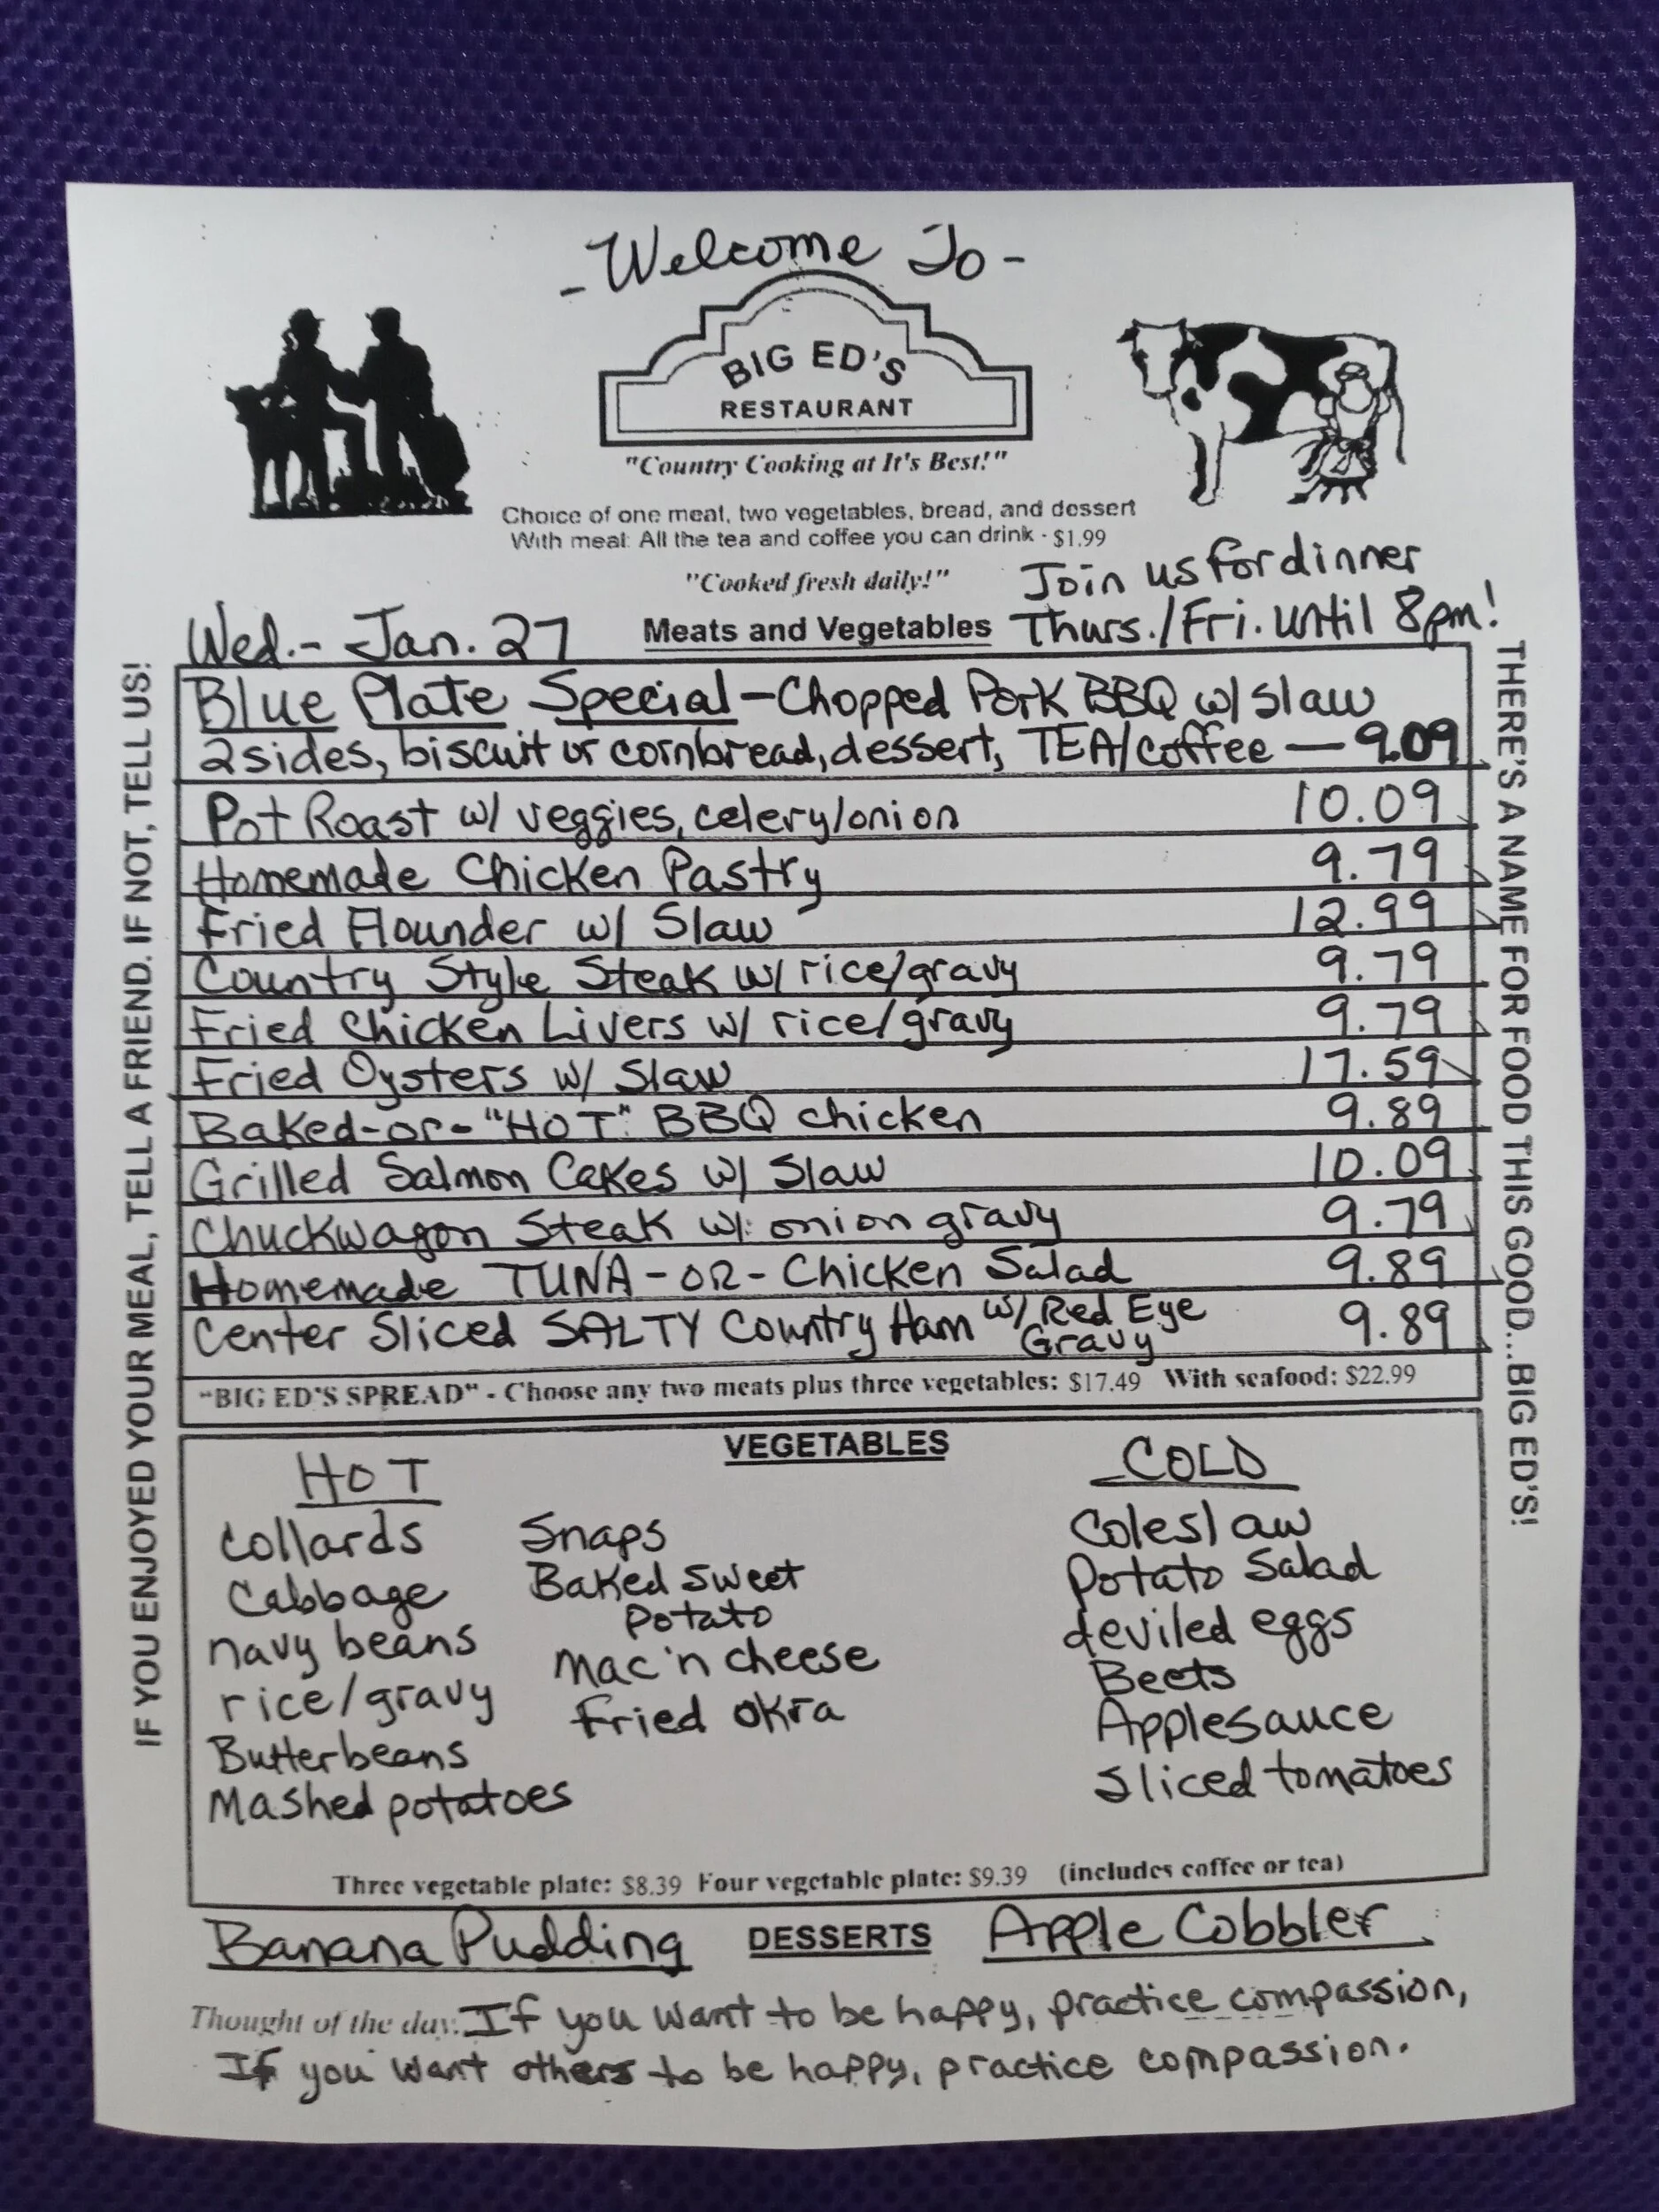 -Welcome To-
BIG ED'S
RESTAURANT
"Country Cooking at It's Best!"
Choice of one meat, two vegetables, bread, and dessert
With meal: All the tea and coffee you can drink - $1.99
"Cooked fresh daily!"
Join us for dinner
Thurs./Fri. until 8pm!
Wed.- Jan. 27
Meats and Vegetables
Blue Plate Special-Chopped Pork BBQ w/ slaw
2 sides, biscuit or cornbread, dessert, TEA/coffee — 9.09
Pot Roast w/ veggies, celery/onion 10.09
Homemade Chicken Pastry 9.79
Fried Flounder w/ Slaw 12.99
Country Style Steak w/ rice/gravy 9.79
Fried Chicken Livers w/ rice/gravy 9.79
Fried Oysters w/ Slaw 17.59
Baked-or-"HOT" BBQ chicken 9.89
Grilled Salmon Cakes w/ Slaw 10.09
Chuckwagon Steak w/ onion gravy 9.79
Homemade TUNA-OR-Chicken Salad 9.89
Center Sliced SALTY Country Ham w/ Red Eye Gravy 9.89
"BIG ED'S SPREAD" - Choose any two meats plus three vegetables: $17.49 With seafood: $22.99
VEGETABLES
HOT
Collards
Cabbage
navy beans
rice/gravy
Butterbeans
Mashed potatoes
Snaps
Baked Sweet
Potato
Mac 'n cheese
Fried okra
COLD
Coleslaw
Potato Salad
deviled eggs
Beets
Applesauce
Sliced tomatoes
Three vegetable plate: $8.39 Four vegetable plate: $9.39 (includes coffee or tea)
Banana Pudding DESSERTS Apple Cobbler
Thought of the day: If you want to be happy, practice compassion,
If you want others to be happy, practice compassion.
IF YOU ENJOYED YOUR MEAL, TELL A FRIEND. IF NOT, TELL US!
THERE'S A NAME FOR FOOD THIS GOOD...BIG ED'S!